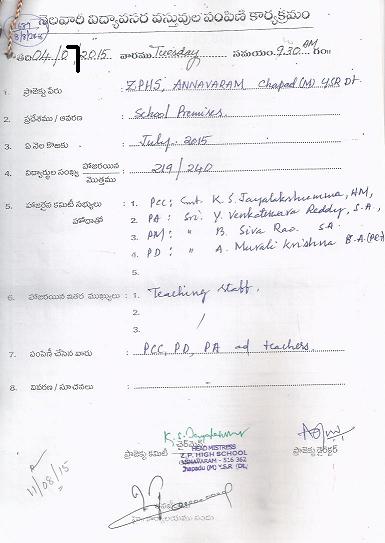 నెలవారీ విద్యావసర వస్తువుల పంపిణీ కార్యక్రమం
3/8/2015
తేది: 04/07/2015 వారము Tuesday సమయం: 9.30 AM గం॥
1. ప్రాజెక్టు పేరు : Z.P.H.S, ANNAVARAM Chapad (M) YSR Dt.
2. ప్రదేశము / ఆవరణ : School Premises.
3. ఏ నెల కొఱకు : July - 2015
4. విద్యార్థుల సంఖ్య హాజరయిన / మొత్తము : 219/240
5. హాజరైన కమిటీ సభ్యులు : 1. PCC: Smt. K.S. Jayalakshumma, HM,
హోదాతో 2. PA: Sri. Y. Venkateswara Reddy, S.A.,
3. PM: " B. Siva Rao. S.A.
4. PD: " A. Murali Krishna B.A (PET)
5.
6. హాజరయిన ఇతర ముఖ్యులు : 1. Teaching staff.
2.
3.
7. పంపిణీ చేసిన వారు : PCC, PD, PA ad teachers.
8. వివరణ / సూచనలు : -
K.S. Jayalakshumma
ప్రాజెక్టు కమిటీ ఛైర్మైన్ ప్రాజెక్టు డైరెక్టర్
HEAD MISTRESS
Z.P. HIGH SCHOOL
ANNAVARAM - 516 362
Chapadu (M) Y.S.R (Dt.)
11/08/15